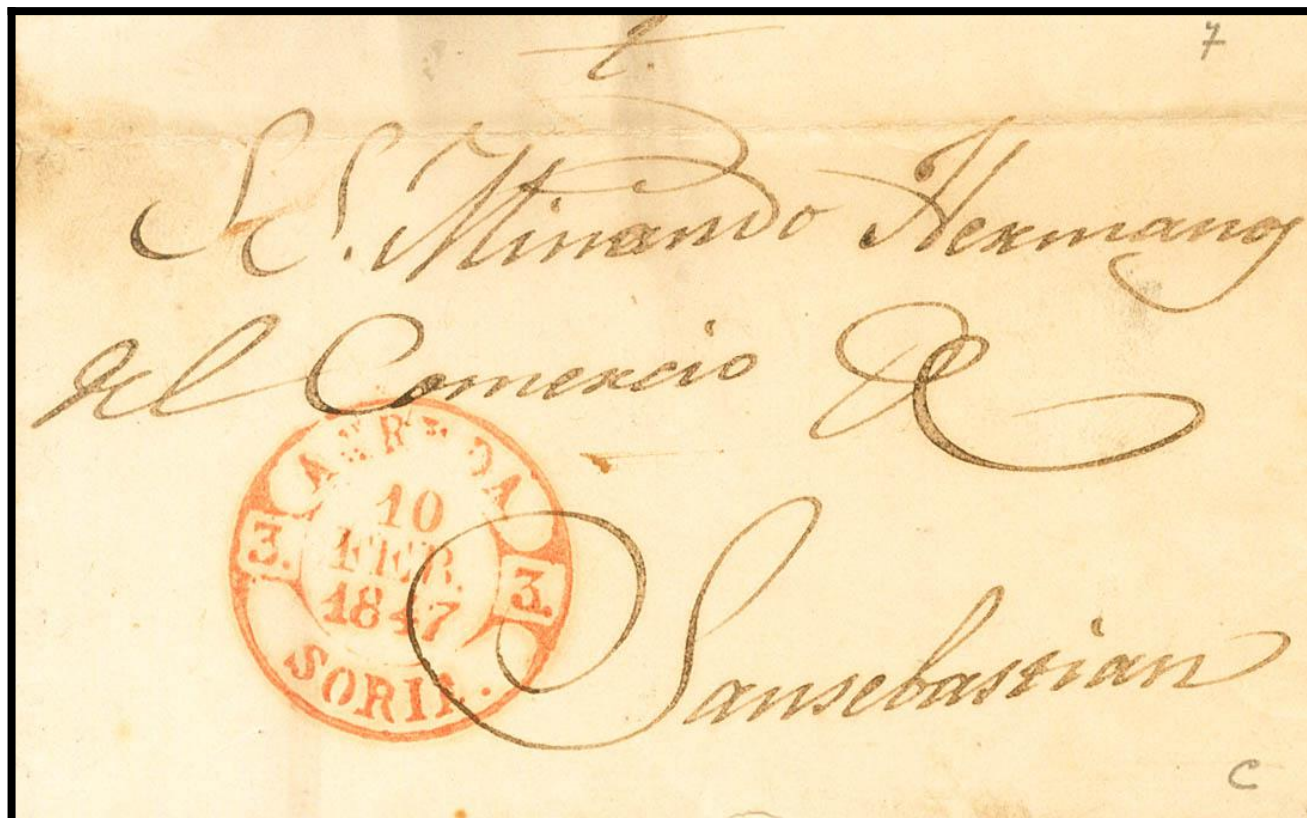 7
S.S. Minando Hermanos
del Comercio de
10
FEB.
1847
3.
3.
SORIA.
Sansebastian
C